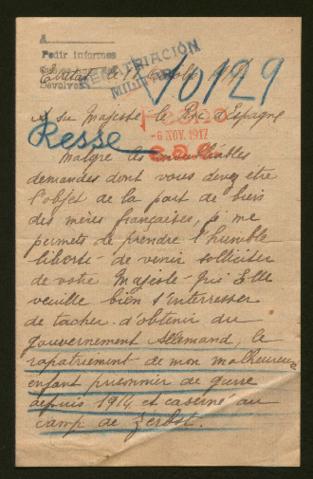 A
Pedir informes
Devolver
REPATRIACIÓN
MILITAR
Etretat le 17 Octobre
10129
A su Majesté le Roi d'Espagne
Fecho
-6 NOV. 1917
Resse
Malgré les innombrables
demandes dont vous devez être
l'objet de la part de bien
des mères françaises, je me
permets de prendre l'humble
liberté de venir solliciter
de votre Majesté qu'Elle
veuille bien s'interresser
de tacher d'obtenir du
gouvernement Allemand, le
rapatriement de mon malheureux
enfant prisonnier de guerre
depuis 1914 et caserné au
camp de Zerbst.